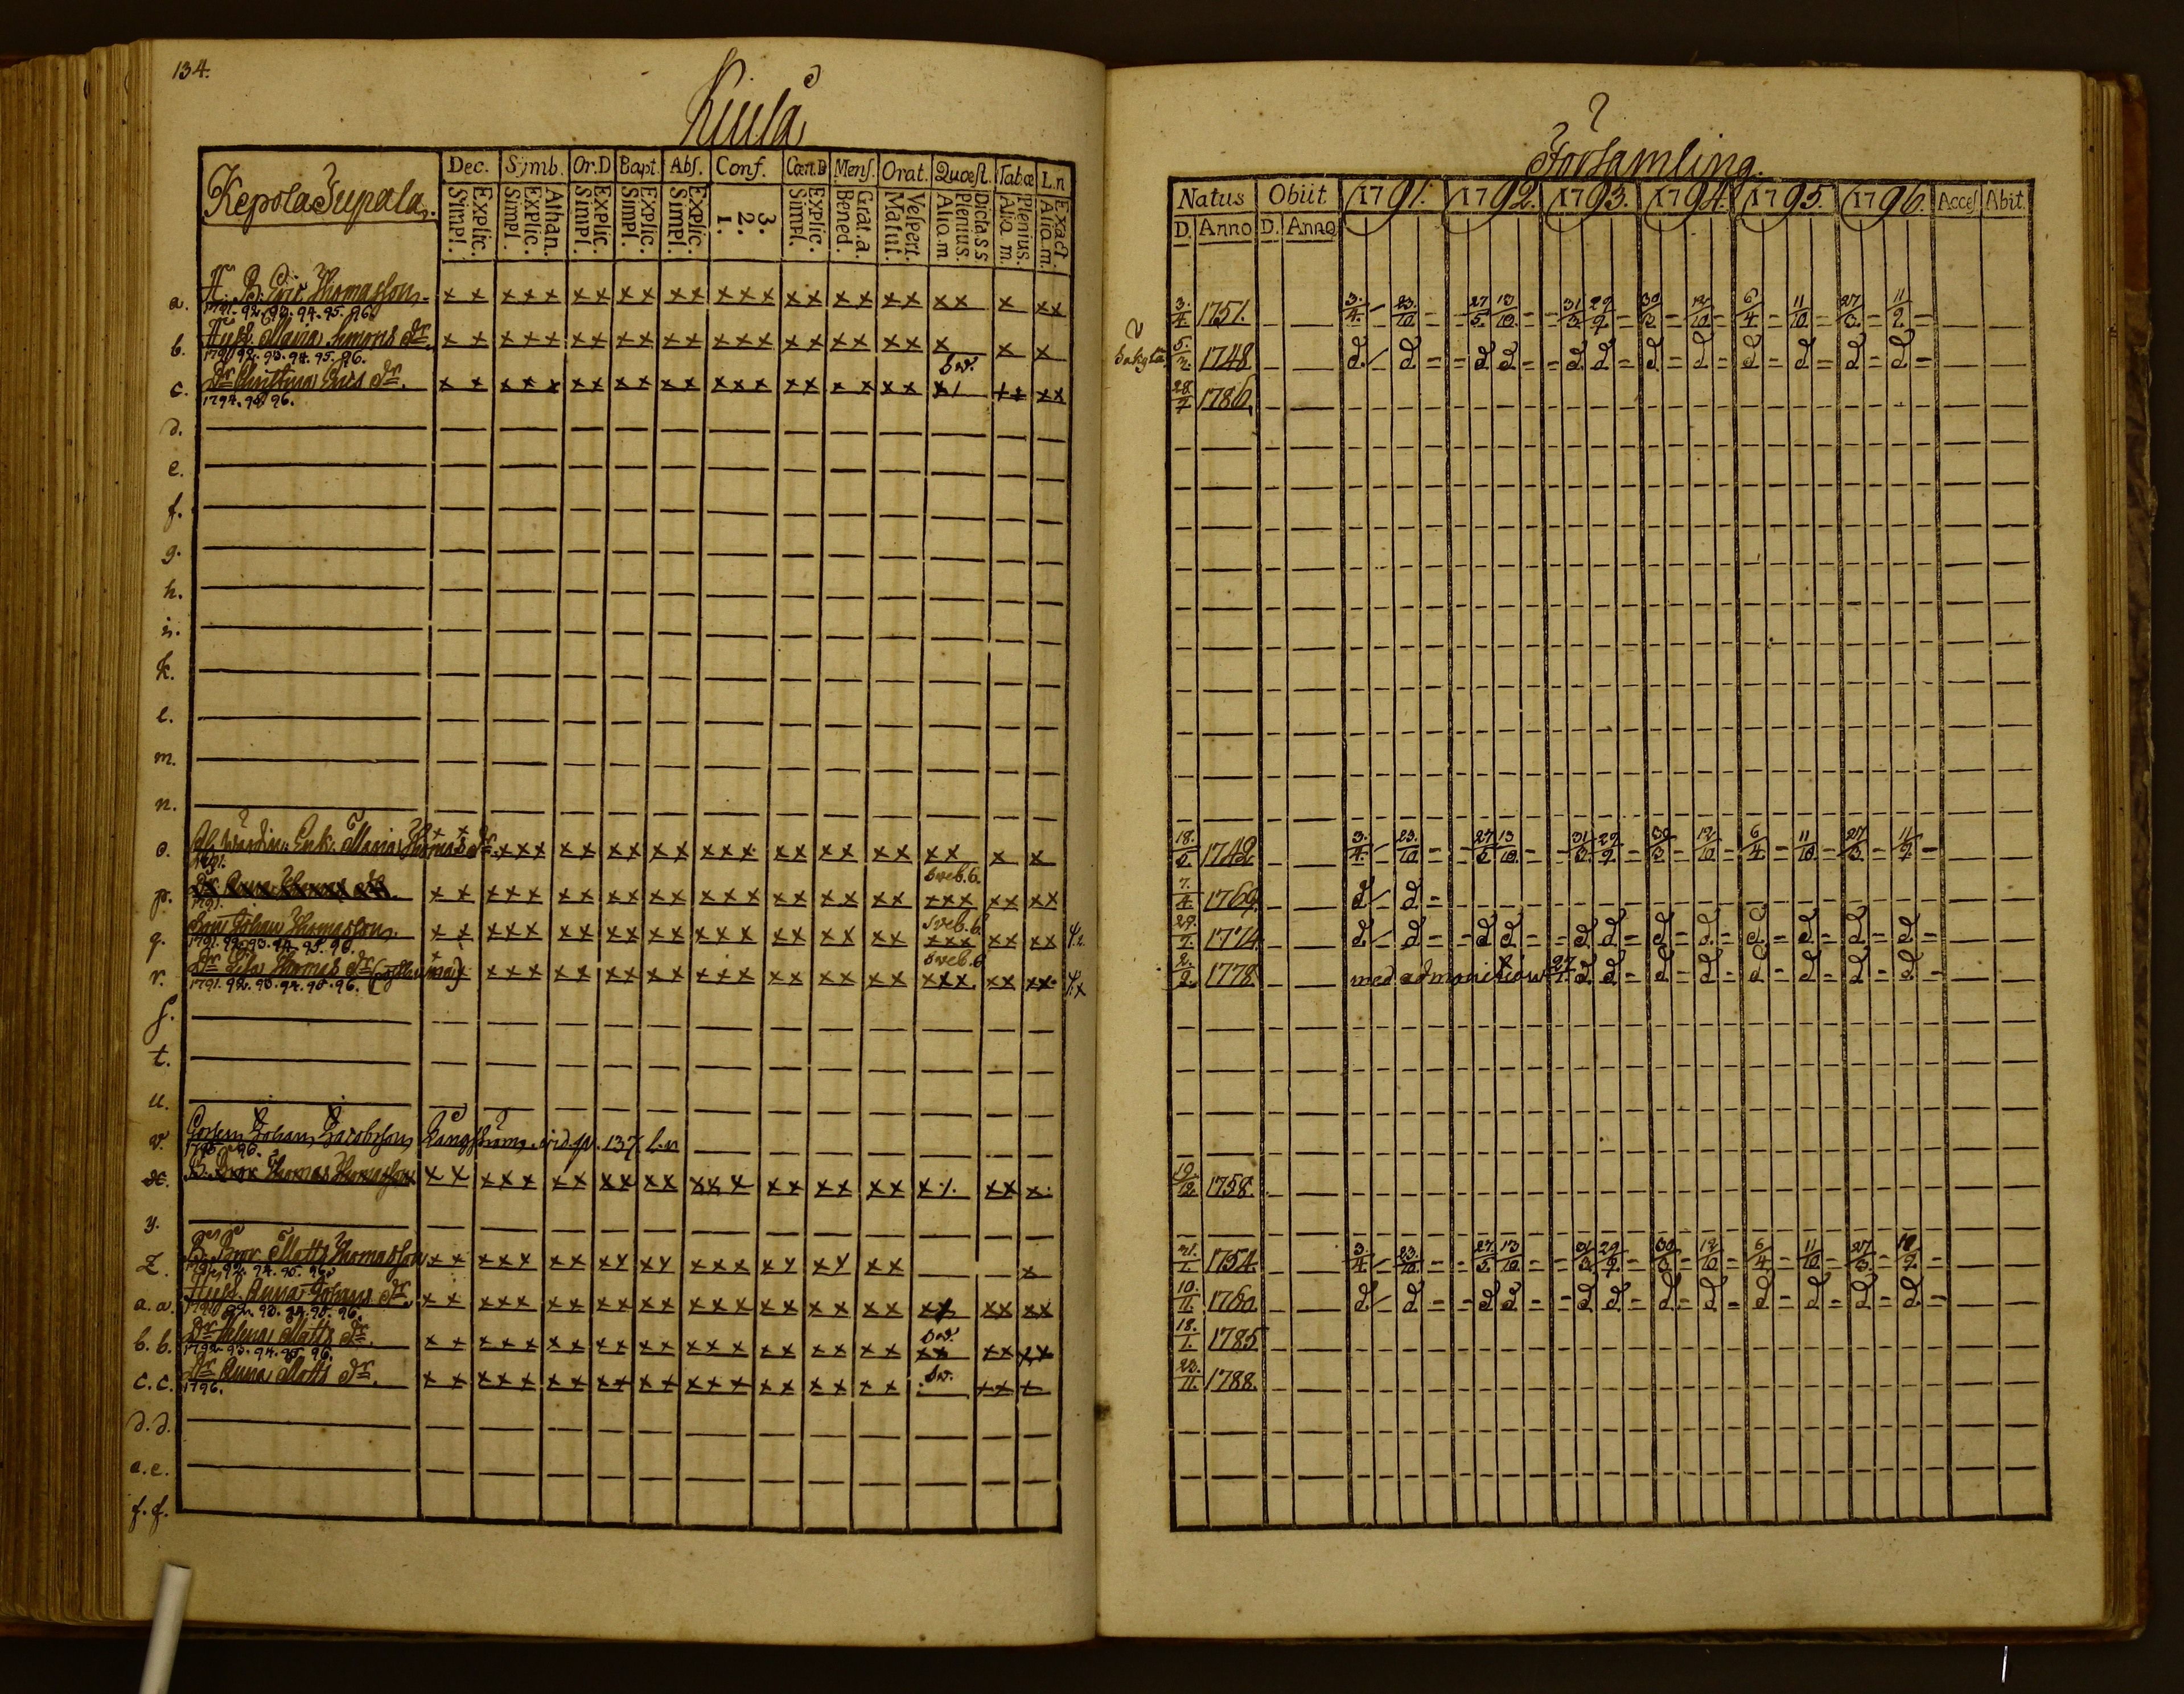 134.
Kiula
Kepola Jupala.
Dec. Sÿmb. Or.D Bapt. Abſ. Conf. Cœn.D Menſ. Orat. Quæſt. Tab.œ L.n
Simpl. Explic. Simpl. Explic. Athan. Simpl. Explic. Simpl. Explic. Simpl. Explic. 1. 2. 3. Simpl. Explic. Bened. Grat.a. Matut. Veſpert. Alio.m Plenius. Dicta.s.s Alio m. Plenius. Alio.m. Exact.
a. B. Eric Thomasson x x x x x x x x x x x x x x x x x x x x x x x x x
1791. 92. 93. 94. 95. 96.
b. Hust. Maria Simons dr. x x x x x x x x x x x x x x x x x x x x x x x
1791 92. 93. 94. 95. 96.
Sv.
c. Dr Christina Erics dr. x x x x x x x x x x x x x x x x x x x x
1794. 95. 96.
d.
e.
f.
g.
h.
i.
k.
l.
m.
n.
o. Enk. Maria Thomas dr. x x x x x x x x x x x x x x x x x x x x x x x x
1791.
Sveb.6.
p. x x x x x x x x x x x x x x x x x x x x x x x x x x x
1791.
Sveb.6.
q. Son Johan Thomasson x x x x x x x x x x x x x x x x x x x x x x x x x x x
1791. 92. 93. 94. 95. 96
Sveb.6
r. Dr Thomas dr x x x x x x x x x x x x x x x x x x x x x x x x x x
1791. 92. 93. 94. 95. 96.
s.
t.
u.
v. Johan Jacobsson vid. p. 137. l.n
1795 96.
x. B. Bror Thomas Thomasson x x x x x x x x x x x x x x x x x x x x x x x x x
y.
z. B. Bror Matts Thomasson x x x x x x x x x x x x x x x x x x x x x x x
a.a. Hust. Anna Johans dr. x x x x x x x x x x x x x x x x x x x x x x x x x x
Sv.
b.b. Dr Helena Matts dr. x x x x x x x x x x x x x x x x x x x x x x x x x x
1792. 93. 94. 95. 96.
Sv.
c.c. Dr Anna Matts dr. x x x x x x x x x x x x x x x x x x x x
1796.
d.d.
e.e.
f.f.
Församling.
Natus Obiit 1791. 1792. 1793. 1794. 1795. 1796. Acceſ Abit.
D. Anno D. Anno
3/4. 1751. 3./4. 23./10 27/5. 13/10. 31/3. 29/9. 30/3 12/10 6/4 11/10 27/3. 11/9.
1748 d. d d d d d d d d d d d
28/7 1786.
18./2. 1742 3./4. 23./10 27/5 13/10. 31/3. 29/9. 30/3 12/10 6/4 11/10. 27/3. 11/9
7./4 1769. d d
29./7. 1774 d d d d d d d d d d d d
2./9. 1778. med admonition d d d d d d d d
19/12. 1758.
1754 3./4 23./10 27./5 13/10 31/3 29/9 30/3 12/10 6/4 11/10 27/3 10/9.
10/11. 1760. d d d d d d d d d d d d
18./1. 1785
23./11. 1788.